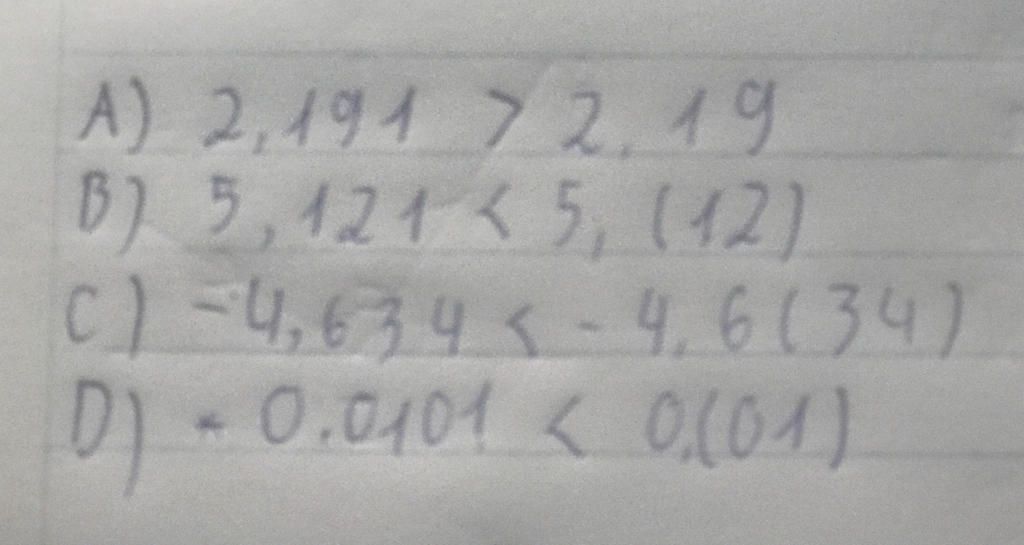 A) 2,191 > 2.19
B) 5,121 < 5,(12)
C) -4,634 < -4.6(34)
D) - 0.0101 < 0.(01)